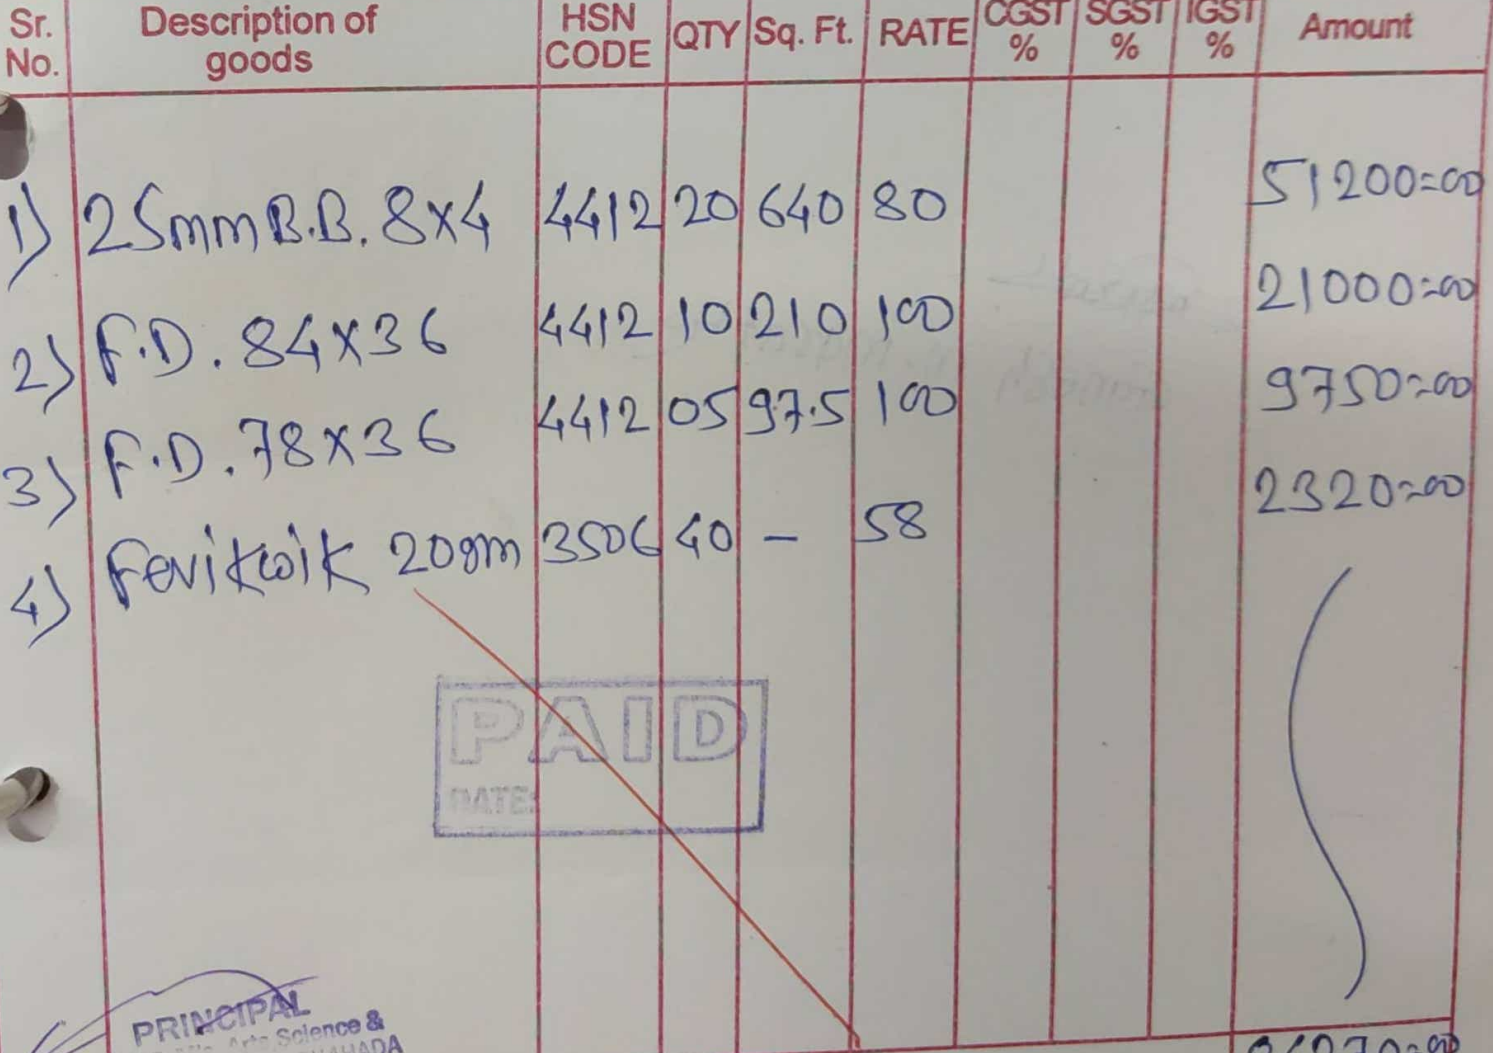 Sr. No. Description of goods HSN CODE QTY Sq. Ft. RATE CGST % SGST % IGST % Amount
1) 25mm B.B. 8x4 4412 20 640 80 51200=00
2) F.D. 84x36 4412 10 210 100 21000=00
3) F.D. 78x36 4412 05 97.5 100 9750=00
4) Fevikwik 20gm 3506 40 - 58 2320=00
PAID
DATE:
PRINCIPAL
Arts Science &